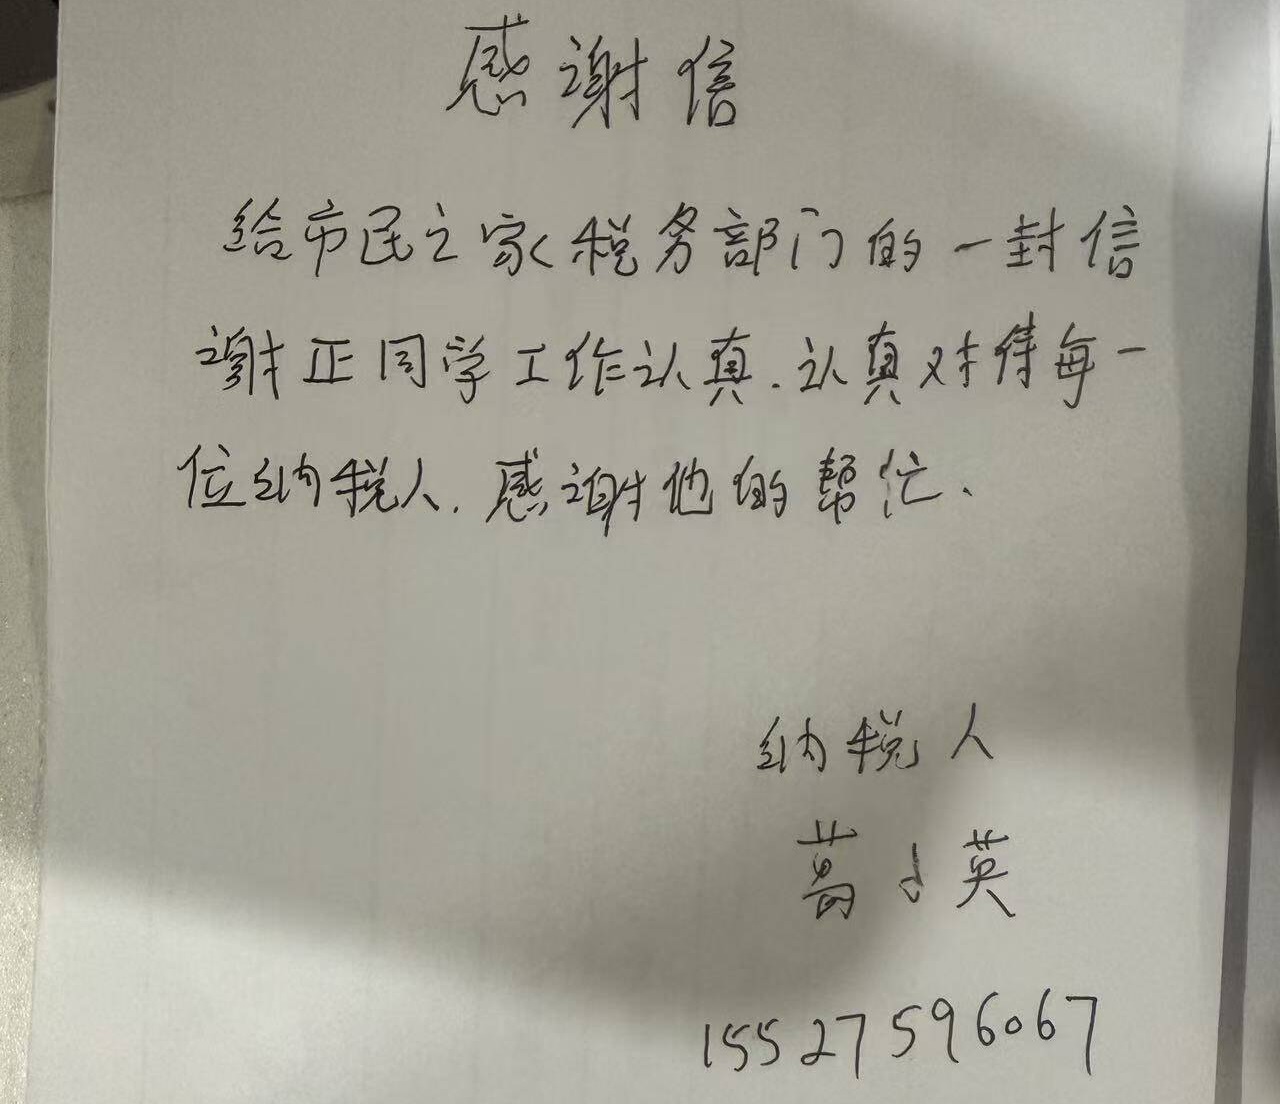 感谢信
给市民之家税务部门的一封信
谢正同学工作认真.认真对待每一
位纳税人.感谢他的帮忙、
纳税人
葛小英
15527596067